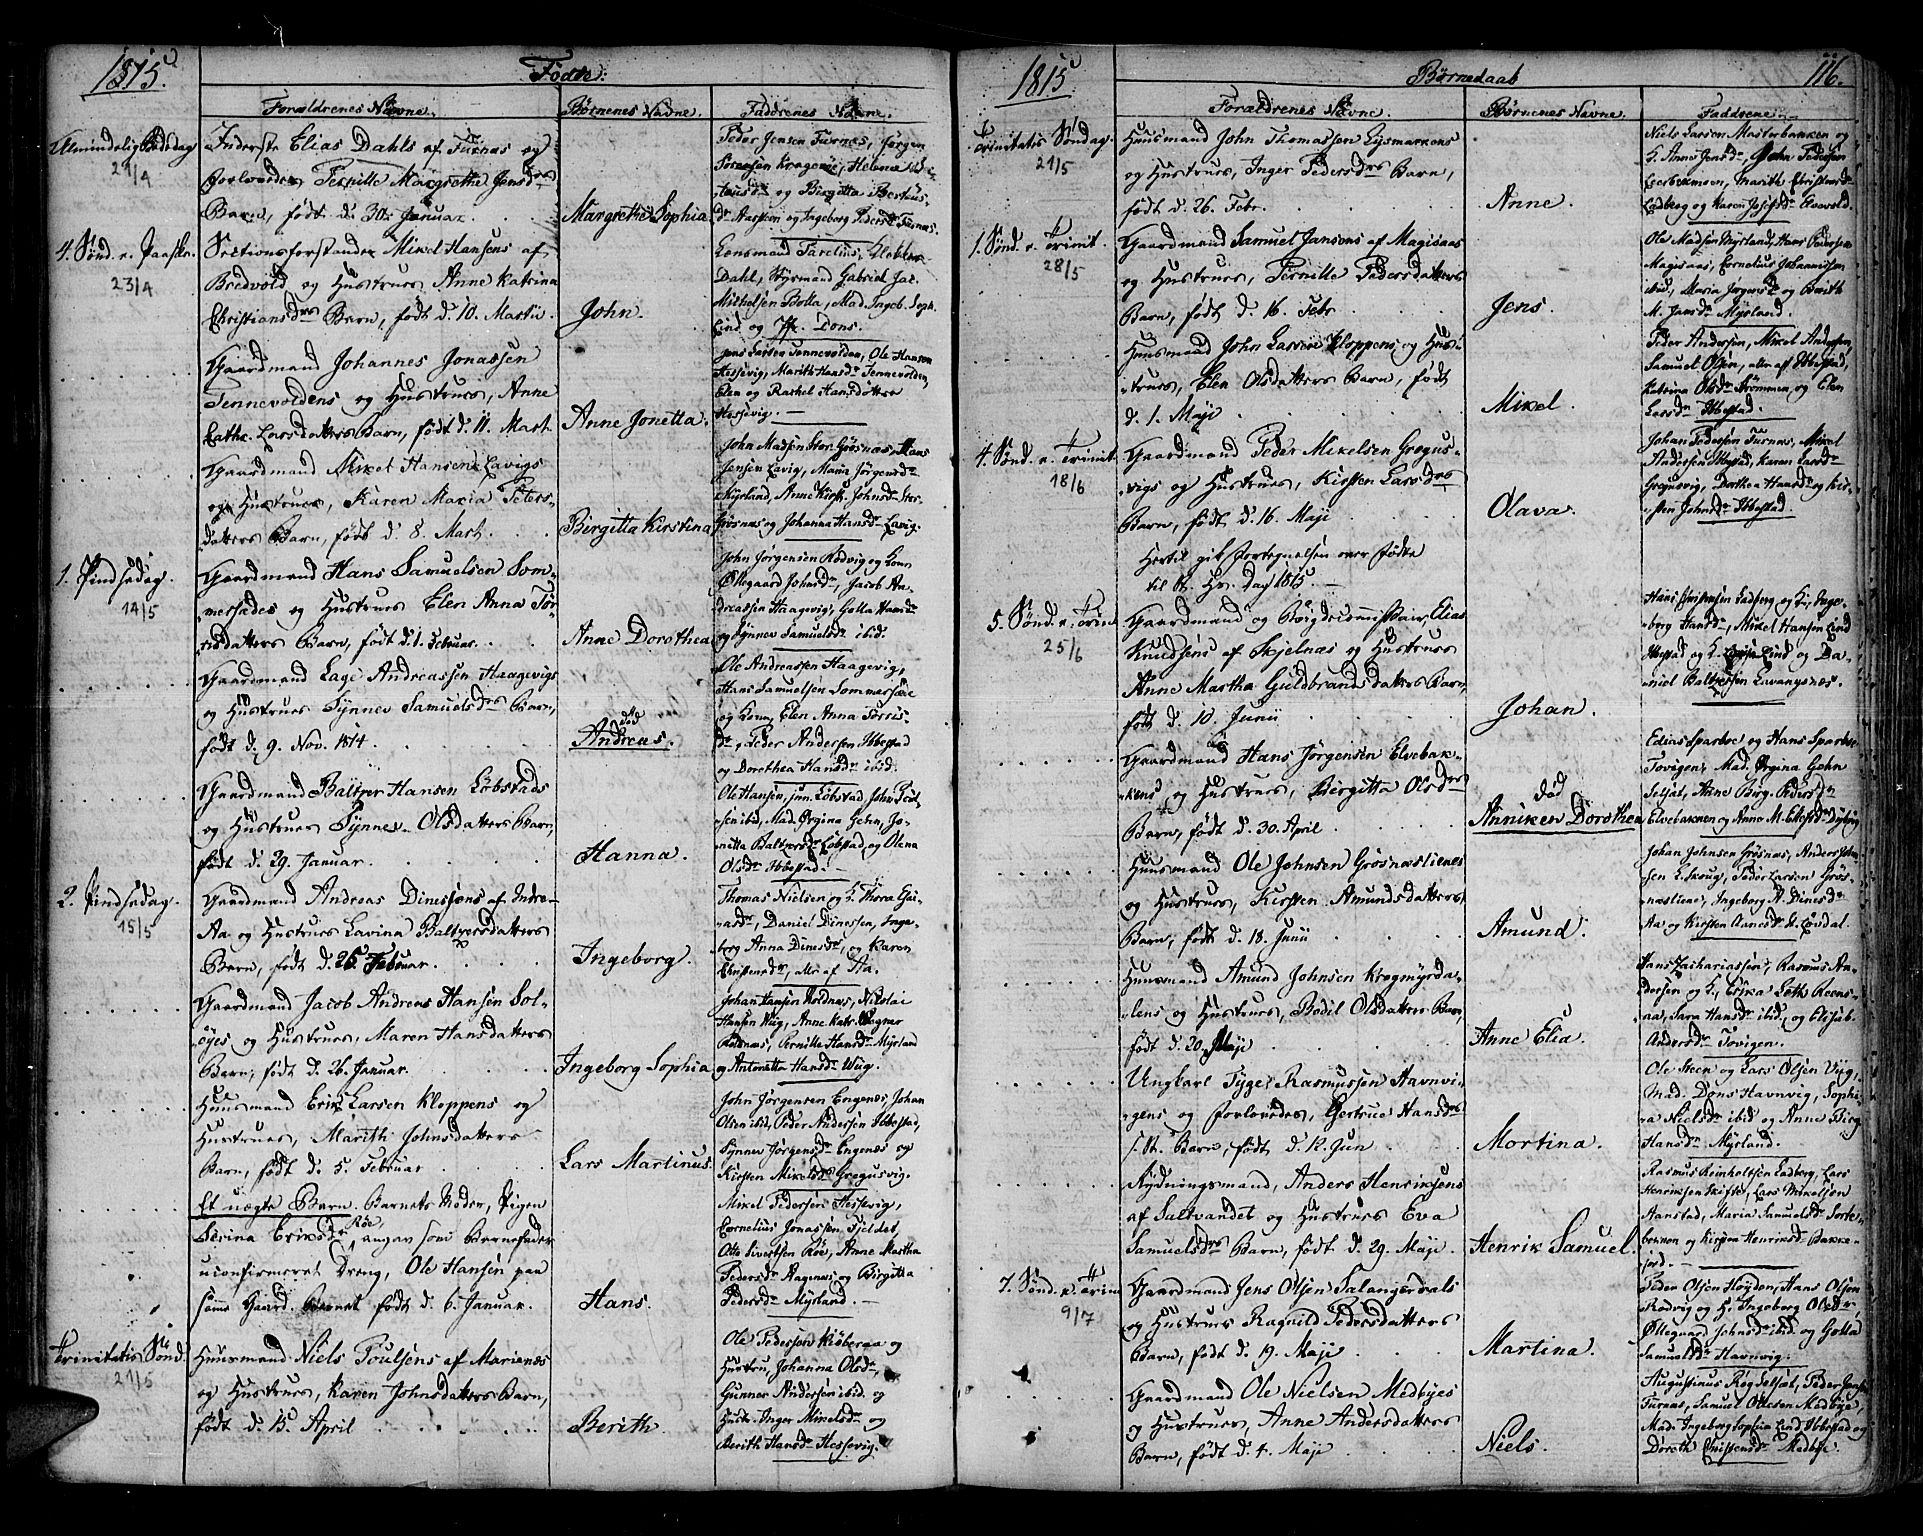 1815.
Födte:
Forældrenes Navne.
Børnenes Navne.
Faddrenes Navne.
Almindelig Bededag
21/4
Inderste Elias Dahls af Furnæs og
forlovedes Pernille Margrethe Jensdrs
Barn, født d. 30. Januar.
Margrethe Sophia
Peder Jensen Furnæs, Jørgen
Sørensen Kragenæs, Helena
og Birgitta Berthus-
dr Aarsteen og Ingeborg Pedersdr Furnæs.
4. Sønd. e. Paaske.
23/4
Mikel Hansens af
Bredvold og Hustrues Anne Katrina
Christiansdrs Barn, født d. 10. Martii.
John.
Lensmand Parelius, Klokker
Dahl, Styrmand Gabriel Jac.
Michelsen Bolla, Mad. Ingeb. Soph.
Lind og Jfr. Dons.
Gaardmand Johannes Jonassen
Tennevoldens og Hustrues, Anne
Cathr. Larsdatters Barn, født d. 11. Mart.
Anne Jonetta.
Jens Larsen Tennevolden, Ole Hansen
Hessevig, Marith Hansdr Tennevolden,
Elen og Rachel Hansdotter
Hessevig.
Gaardmand Mikel Hansens Lavigs
og Hustrues, Karen Maria Peters-
datters Barn, født d. 8. Mart.
Birgitta Kirstina
John Madsen Stor Grøsnæs, Hans
Jensen Lavig, Maria Jørgensdr
Myrland, Anne Kirst. Johnsdr Stor-
Grøsnæs og Johanna Hansdr Lavig.
1. Pindsedag.
14/5
Gaardmand Hans Samuelsen Som-
mersædes og Hustrues Elen Anna Tør-
risdatters Barn, født d. 1. Februar.
Anne Dorothea
John Jørgensen Rodvig og Kone
Øllegaard Johnsdr, Jacob An-
dreassen Haagevig, Golla Hansdr
og Synnev Samuelsdr ibid.
Gaardmand Lage Andreassen Haagevigs
og Hustrues Synnev Samuelsdrs Barn,
født d. 9. Nov. 1814.
død
Andreas.
Ole Andreassen Haagevig,
Hans Samuelsen Sommersæde
og Kone, Elen Anna Torris-
dr, Peder Andersen Ibbestad
og Dorothea Hansdr ibid.
Gaardmand Baltzer Hansen Løbstads
og Hustrues Synnev Olsdatters Barn,
født d. 29. Januar.
Hanna.
Ole Hansen, jun. Løbstad, John Ped-
sen ibid, Mad. Ørgina Gehn, Jo-
nitta Baltzersdr Løbstad og Olena
Olsdr Ibbestad.
2. Pindsedag.
15/5
Gaardmand Andreas Dinessens af Indre-
Aa og Hustrues Lavina Baltzersdatters
Barn, født d. 25. Februar.
Ingeborg.
Thomas Nielsen og K. Thora Ei-
nardr, Daniel Dinessen, Inge-
borg Anna Dinesdr, og Karen
Christensdr, alle af Aa.
Gaardmand Jacob Andreas Hansen Sol-
øyes og Hustrues, Maren Hansdatters
Barn, født d. 26. Januar.
Ingeborg Sophia
Johan Hansen Rotnæs, Nikolai
Hansen Wiig, Anne Katr. Wagner
Rotnæs, Pernille Hansdr Myrland
og Antonetta Hansdr Wiig.
Huusmand Erik Larsen Kloppens og
Hustrues, Marith Johnsdatters
Barn, født d. 5. Februar
Lars Martinus.
John Jørgensen Engenæs, Johan
Olsen ibid, Peder Andersen Ibbestad,
Synnev Jørgensdr Engenæs og
Kirsten Mikelsdr Gregusvig.
Et uægte Barn. Barnets Moder, Pigen
Serina Eriksdr Röe, angav som Barnefader
uconfirmeret Dreng, Ole Hansen paa
samme Gaard. Barnet født d. 6. Januar.
Hans.
Mikel Pedersen Hessevig,
Cornelius Jonassen Fjeldet,
Otto Sivertsen Röe, Anne Martha
Pedersdr Aagenæs og Birgitta
Pedersdr Myrland.
Trinitatis Sønd.
21/5
Huusmand Niels Poulsens af Marienæs
og Hustrues, Karen Johnsdatters Barn,
født d. 15. April
Berith.
Ole Pedersen Kröberaa og
Hustru, Johanna Olsdr,
Gunner Andersen ibid. og
Hustr. Inger Mikelsdr og
Berith Hansdr Hessevig.
1815
Børnedaab
116.
Forældrenes Navne.
Børnenes Navne.
Faddrene
Trinitatis Söndag.
21/5
Huusmand John Thomassen Lysmarkens
og Hustrues, Inger Pedersdrs Barn,
født d. 26. Febr.
Anne.
Niels Larsen Masterbakken og
K. Anne Jensdr, John Pedersen
Marith Christensdr
Ladberg og Karen Josefsdr Elvevold.
1. Sönd. e. Trinit.
28/5
Gaardmand Samuel Jansons af Magisaas
og Hustrues, Pernille Pedersdatters
Barn, født d. 16. Febr.
Jens.
Ole Madsen Myrland, Hans Pedersen
Magisaas, Cornelius Johannissen
ibid, Maria Jørgensdr og Berith
M. Jensdr Myrland.
Huusmand John Larsen Kloppens og Hus-
trues, Elen Olsdatters Barn, født
d. 1. Maji
Mikel.
Peder Andersen, Mikel Andersen,
Samuel Olsen, alle af Ibbestad,
Katrina Olsdr Strömmen, og Elen
Larsdr Ibbestad.
4. Sönd. e. Trinit.
18/6
Gaardmand Peder Mikelsen Gregus-
vigs og Hustrues, Kirsten Larsdrs
Barn, født d. 16. Maji
Olava.
Johan Pedersen Furnæs, Mikel
Andersen Ibbestad, Karen Larsdr
Gregusvig, Dorthea Haardr og Kir-
sten Johnsdr Ibbestad.
Hertil gik fortegnelsen over fødte
til St. Hs. Dag 1815.
5. Sönd. e. Trin.
25/6
Gaardmand og Borgdriommissair, Elias
Knudsens af Skjelnæs og Hustrues
Anne Martha Guldbrandsdatters Barn,
født d. 10. Junii
Johan.
Hans Christensen Ladberg og K., Inge-
borg Hansdr, Mikel Hansen Lind
Ibbestad og K. Lovise Lind og Da-
niel Baltzersen Lavangsnæs.
Gaardmand Hans Jörgensen Elvebak-
kens og Hustrues, Birgitta Olsdrs
Barn, født d. 30. April
død
Anniken Dorothea
Edias Sparboe og Hans Sparboe
Tovigen, Mad. Ørgina Gehn
Seljæt, Anne Birg. Pedersdr
Elvebakken og Anna M. Ellefsdr Dyping
Huusmand Ole Johnsen Grøsnæslienes
og Hustrues, Kirsten Amundsdatters
Barn, født d. 18. Junii
Amund.
Johan Johnsen Grösnæs, Anders John-
sen L. Skoug, Peder Larsen Grös-
næsliene, Ingeborg A. Dinesdr
Aa og Kirsten Aanesdr St. Lövdal.
Huusmand Amund Johnsen Krogmyrda-
lens og Hustrues, Bodil Olsdatters Barn,
født d. 20. Maji
Anne Elia.
Hans Zachariassen, Rasmus An-
dersen og K., Erika Loth Reens-
aa, Sara Hansdr ibid, og Elisab.
Andersdr Tovigen.
Ungkarl Tyge Rasmussen Havnvi-
gens og forlovedes, Gertrue Hansdrs
Barn, født d. 12. Jun
Mortina.
Ole Steen og Lars Olsen Viig,
Mad. Dons Havnvig, Sophi-
a Nielsdr ibid og Anne Birg
Hansdr Myrland.
Rydningsmand, Anders Henriksens
af Saltvandet og Hustrues Eva
Samuelsdrs Barn, født d. 29. Maji.
Henrik Samuel.
Rasmus Reinholtsen Ladberg, Lars
Henriksen Skifte, Lars Mikelsen
Aanstad, Maria Samuelsdr Sorte-
bekken og Kirsten Henriksdr Bakke-
jord.
7. Sönd. e. Trin
9/7
Gaardmand Jens Olsens Salangsdals
og Hustrues Ragnild Pedersdatters
Barn, født d. 19. Maji.
Martina.
Peder Olsen Höyden, Hans Olsen
Rodvig og H. Ingeborg Olsdr,
Øllegaard Johnsdr ibid. og Golla
Samuelsdr Havnvig.
Gaardmand Ole Nielsen Medbyes
og Hustrues, Anne Andersdatters
Barn, født d. 4. Maji
Niels.
Augustinus Röe Seljæt, Peder Jensen
Furnæs, Samuel Ottesen Medbye,
Mad. Ingeborg Sophia Lind Ibbestad og
Doreth Christensdr Medbye.